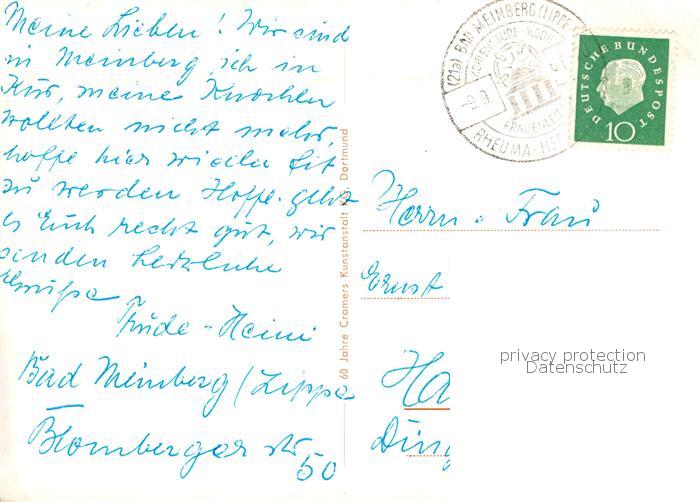 Meine Lieben! Wir sind
in Meinberg, ich in
Kur, meine Knochen
wollten nicht mehr,
hoffe hier wieder fit
zu werden. Hoffe geht
es Euch recht gut, wir
senden herzliche
Grüße
Trude - Heini
Bad Meinberg (Lippe
Blomberger str
50
60 Jahre Cramers Kunstanstalt KG., Dortmund
(21a) BAD MEINBERG (LIPPE
MOOR
-9.9.
61
FRAUENLEI
RHEUMA-HER
DEUTSCHE BUNDESPOST
10
Herrn u. Frau
Ernst
Ha
Ding
privacy protection
Datenschutz